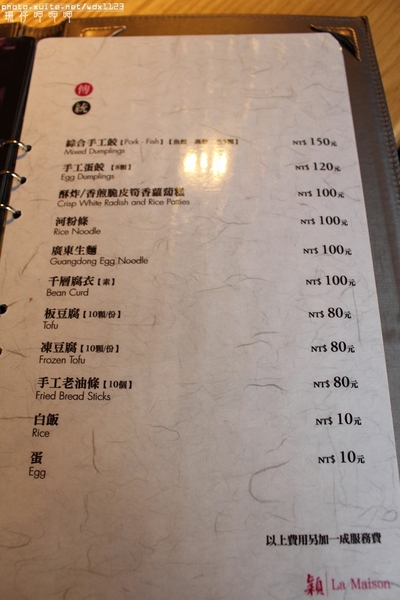 photo.xuite.net/wdx1123
傳
統
綜合手工餃【Pork · Fish】 NT$ 150元
Mixed Dumplings
手工蛋餃【8顆】 NT$ 120元
Egg Dumplings
酥炸/香煎脆皮筍香蘿蔔糕 NT$ 100元
Crisp White Radish and Rice Patties
河粉條 NT$ 100元
Rice Noodle
廣東生麵 NT$ 100元
Guangdong Egg Noodle
千層腐衣【素】 NT$ 100元
Bean Curd
板豆腐【10顆/份】 NT$ 80元
Tofu
凍豆腐【10顆/份】 NT$ 80元
Frozen Tofu
手工老油條【10個】 NT$ 80元
Fried Bread Sticks
白飯 NT$ 10元
Rice
蛋 NT$ 10元
Egg
以上費用另加一成服務費
穎 La Maison